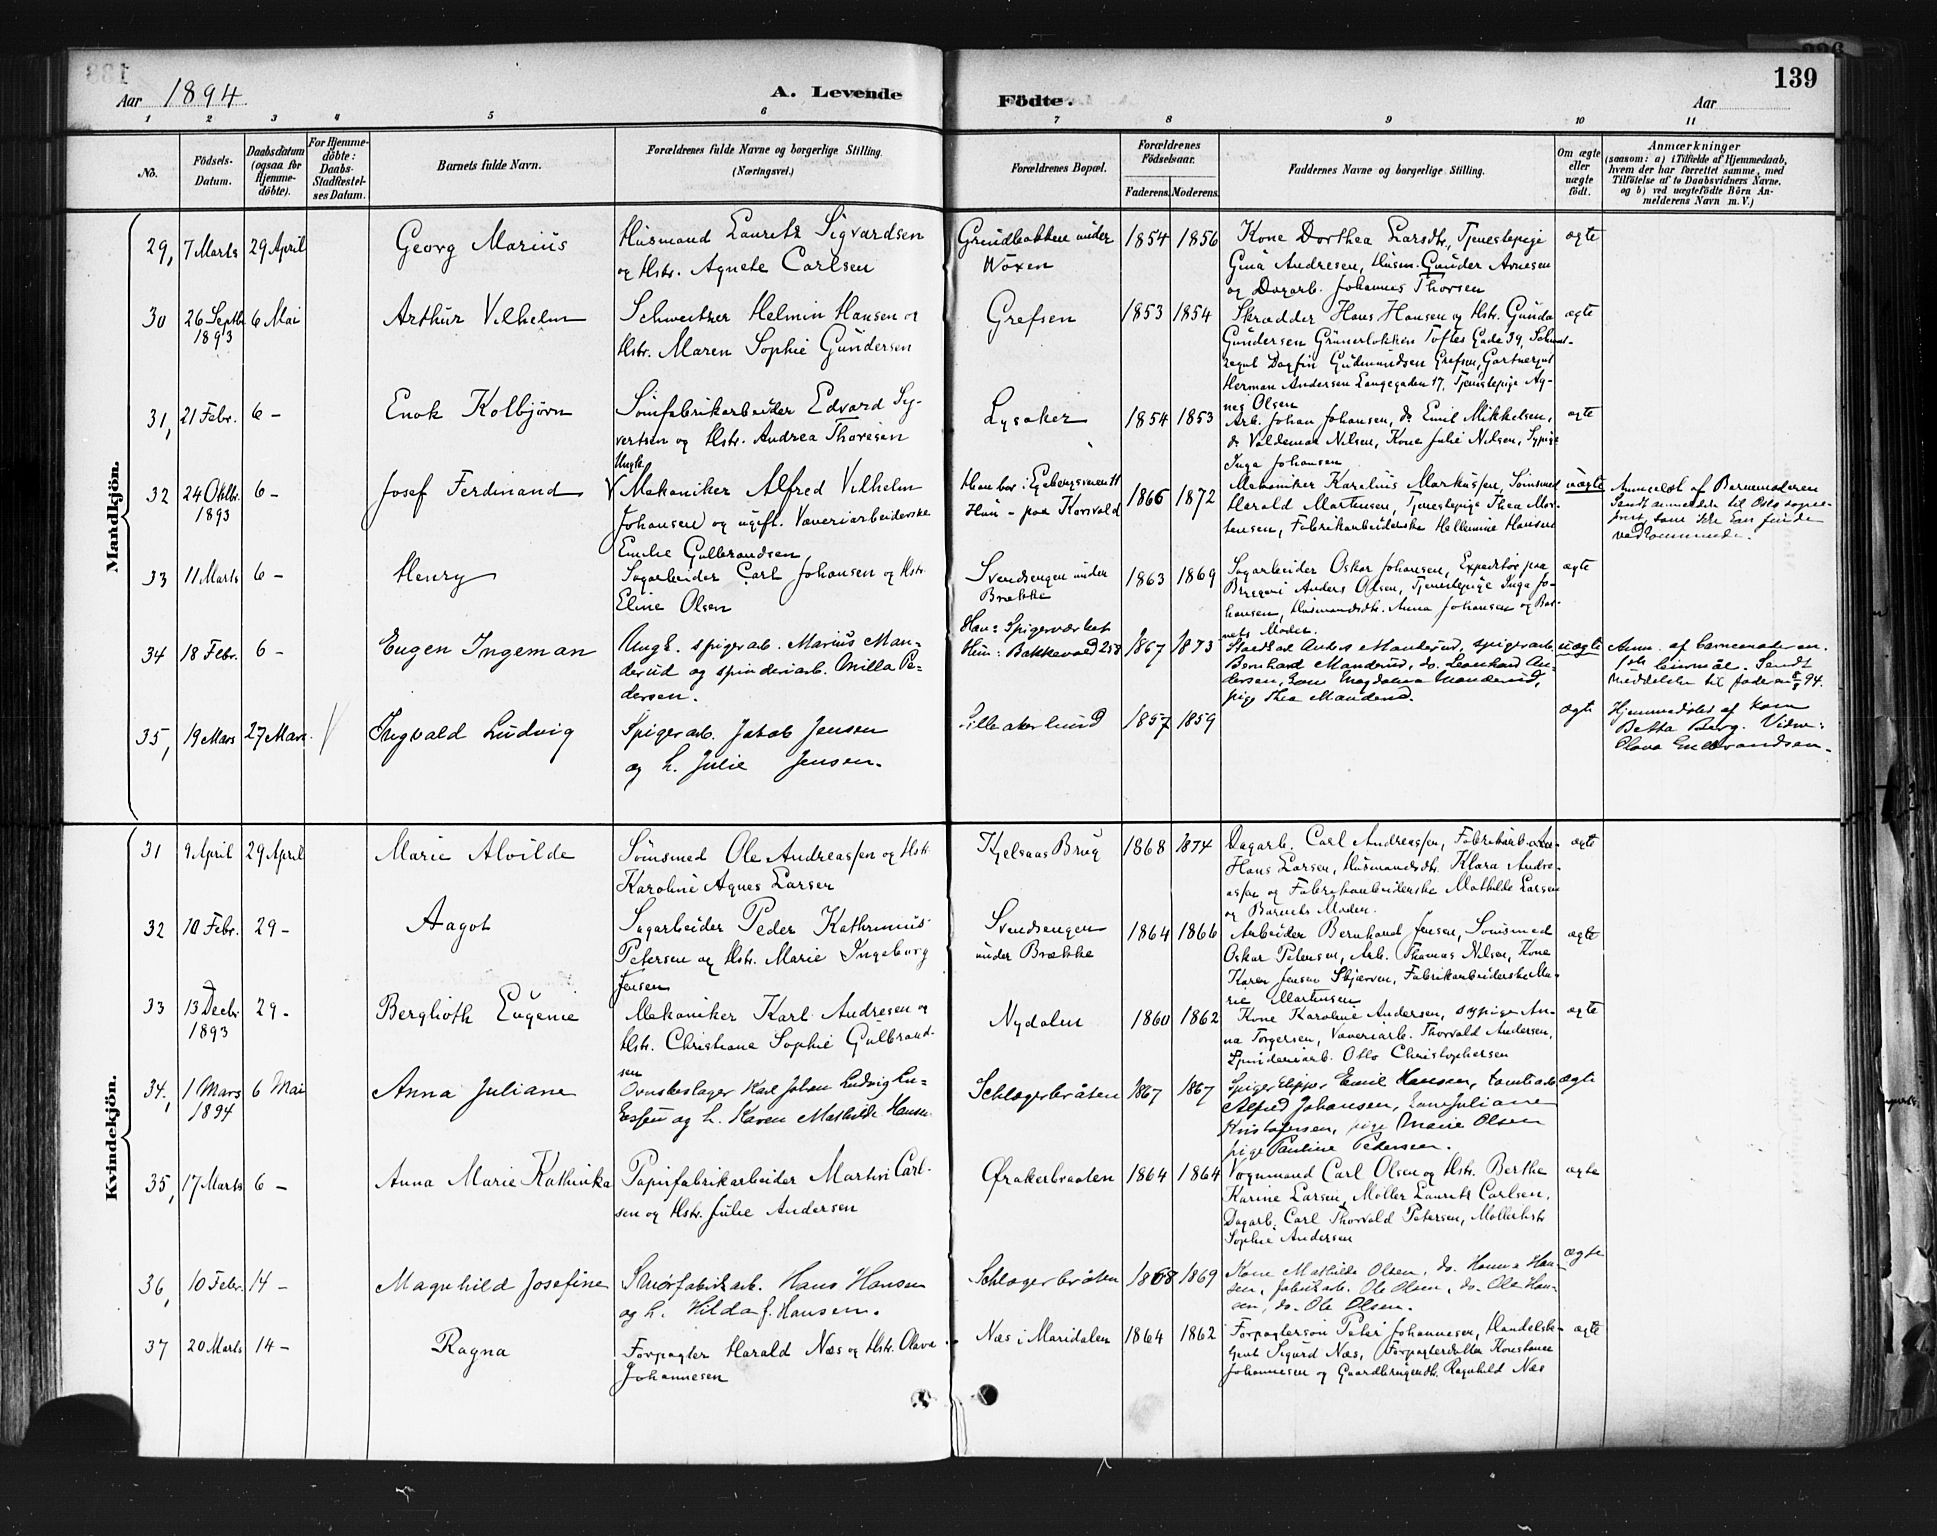 139
Aar 1894
A. Levende
Födte.
Aar
1 2 3 4 5 6 7 8 9 10 11
No.
Födsels-Datum.
Daabsdatum (ogsaa for Hjemme-döbte).
For Hjemme-döbte: Daabs-Stadfæstel-ses Datum.
Barnets fulde Navn.
Forældrenes fulde Navne og borgerlige Stilling.
(Næringsvei.)
Forældrenes Bopæl.
Forældrenes Födselsaar.
Faderens. Moderens.
Faddernes Navne og borgerlige Stilling.
Om ægte eller uægte födt.
Anmærkninger
(saasom: a) i Tilfælde af Hjemmedaab,
hvem der har forrettet samme, med
Tilföielse af to Daabsvidners Navne,
og b) ved uægtefödte Börn An-
melderens Navn m. V.)
Mandkjön.
29, 7 Marts 29 April Georg Marius
Husmand Lauritz Sigvardsen
og Hstr. Agnete Carlsen
Grundbakken under
Vöxen
1854 1856
Kone Dorthea Larsdtr., Tjenestepige
Gina Andresen, Husm. Gunder Arnesen
og Dagarb. Johannes Thorsen
ægte
30 26 Septbr 1893 6 Mai Arthur Vilhelm
Schweitzer Helmin Hansen og
Hstr. Maren Sophie Gundersen
Grefsen
1853 1854
Skrædder Hans Hansen og Hstr. Gunda
Gundersen Grünerlökken Toftes Gade 39,
Dagfin Gudmundsen Grefsen, Gartnergut
Herman Andersen Langegaden 17, Tjenestepige Ag-
nes Olsen
ægte
31, 21 Febr. 6 - Enok Kolbjörn
Sömfabrikarbeider Edvard Sy-
vertsen og Hstr. Andrea Thoresen
Lysaker
1854 1853
Arb. Johan Johansen, do Emil Mikkelsen,
do Valdemar Nilsen, Kone Julie Nilsen, Sypige
Inga Johansen
ægte
32 24 Oktbr. 1893 6 - Josef Ferdinand
Ungk.
Mekaniker Alfred Vilhelm
Johansen og ugift. Væveriarbeiderske
Emilie Gulbrandsen
Han bor i Egebergsveien 11
Hun - paa Korsvold
1866 1872
Mekaniker Karelius Markussen, Sömsmed
Harald Martensen, Tjenestepige Thea Mor-
tensen, Fabrikarbeiderske Hellemine Hansen
uægte
Anmeldt af Barnemoderen
Sendt anmeldelse til Oslo sogne-
prest, som ikke kan finde
vedkommende.
33 11 Marts 6 - Henry
Sagarbeider Carl Johansen og Hstr.
Eline Olsen
Svendsengen under
Brække
1863 1869
Sagarbeider Oskar Johansen, Expeditör paa
Bryggeri Anders Olsen, Tjenestepige Inga Jo-
hansen, Husmandsdtr. Anna Johansen og Bar-
nets Moder.
ægte
34 18 Febr. 6 - Eugen Ingeman
Ungk. spigerarb. Marius Man-
derud og spinderiarb. Milla Pe-
dersen.
Han: Spigerværket
Hun: Bakkevold 258
1867 1873
Anders Manderud, spigerarb.
Bernhard Manderud, do. Leonhard An-
dersen, kone Magdalena Manderud,
pige Thea Manderud.
uægte
Anm. af barnemoderen.
1ste leiermål. Sendt
meddelelse til faderen 8/8 94.
35, 19 Mars 27 Mars Ingvald Ludvig
Spigerarb. Jakob Jensen
og h. Julie Jensen.
Lilleakerlund
1857 1859
ægte
Hjemmedöbt af kone
Betta Berg. Vidne:
Olava Gulbrandsen.
Kvindekjön.
31 9 April 29 April Marie Alvilde
Sömsmed Ole Andreassen og Hstr.
Karoline Agnes Larsen
Kjelsaas Brug
1868 1874
Dagarb. Carl Andreassen, Fabrikarbeider
Hans Larsen, Husmandsdtr. Klara Andre-
assen og Fabrikarbeiderske Mathilde Larsen
og Barnets Moder.
ægte
32 10 Febr. 29 - Aagot
Sagarbeider Peder Kathrinus
Petersen og Hstr. Marie Ingeborg
Jensen
Svendsengen
under Brække
1864 1866
Arbeider Bernhard Jensen, Sömsmed
Oskar Petersen, Arb. Thomas Nilsen, Kone
Karen Jensen Skjærven, Fabrikarbeiderske Ma-
rie Martinsen
ægte
33 13 Decbr. 1893 29 - Berglioth Eugenie
Mekaniker Karl Andresen og
Hstr. Christiane Sophie Gulbrand-
sen
Nydalen
1860 1862
Kone Karoline Andersen, Sypige An-
na Torgersen, Væveriarb. Thorvald Andersen,
Spinderiarb. Otto Christophersen
ægte
34., 1 Mars 1894 6 Mai Anna Juliane
Ovnsbeslager Karl Johan Ludvig La-
ressen og h. Karen Mathilde Hansen
Schlagerbråten
1867 1867
Spigerklipper Emil Hansen, tomtearb.
Alfred Johansen, kone Juliane
Kristofersen, pige Marie Olsen
pige Pauline Pedersen.
ægte
35, 17 Marts 6 - Anna Marie Kathinka
Papirfabrikarbeider Martin Carl-
sen og Hstr. Julie Andersen
Örakerbraaten
1864 1864
Vognmand Carl Olsen og Hstr. Berthe
Karine Larsen, Möller Laurits Carlsen,
Dagarb. Carl Thorvald Petersen, Möllerhstr.
Sophie Andersen
ægte
36, 10 Febr. 14 - Magnhild Josefine
Smörfabrikarb. Hans Hansen
og h. Hilda f. Hansen.
Schlagerbråten
1868 1869
Kone Mathilde Olsen, do. Hanna Han-
sen, fabrikarb. Ole Olsen, do. Ole Han-
sen, do. Ole Olsen.
ægte
37 20 Marts 14 - Ragna
Forpagter Harald Næs og Hstr. Olava
Johannesen
Næs i Maridalen
1864 1862
Forpagtersön Peter Johannesen, Handelsbe-
tjent Sigurd Næs, Forpagterdatter Konstance
Johannesen og Gaardbrugerdtr. Ragnhild Næs
ægte